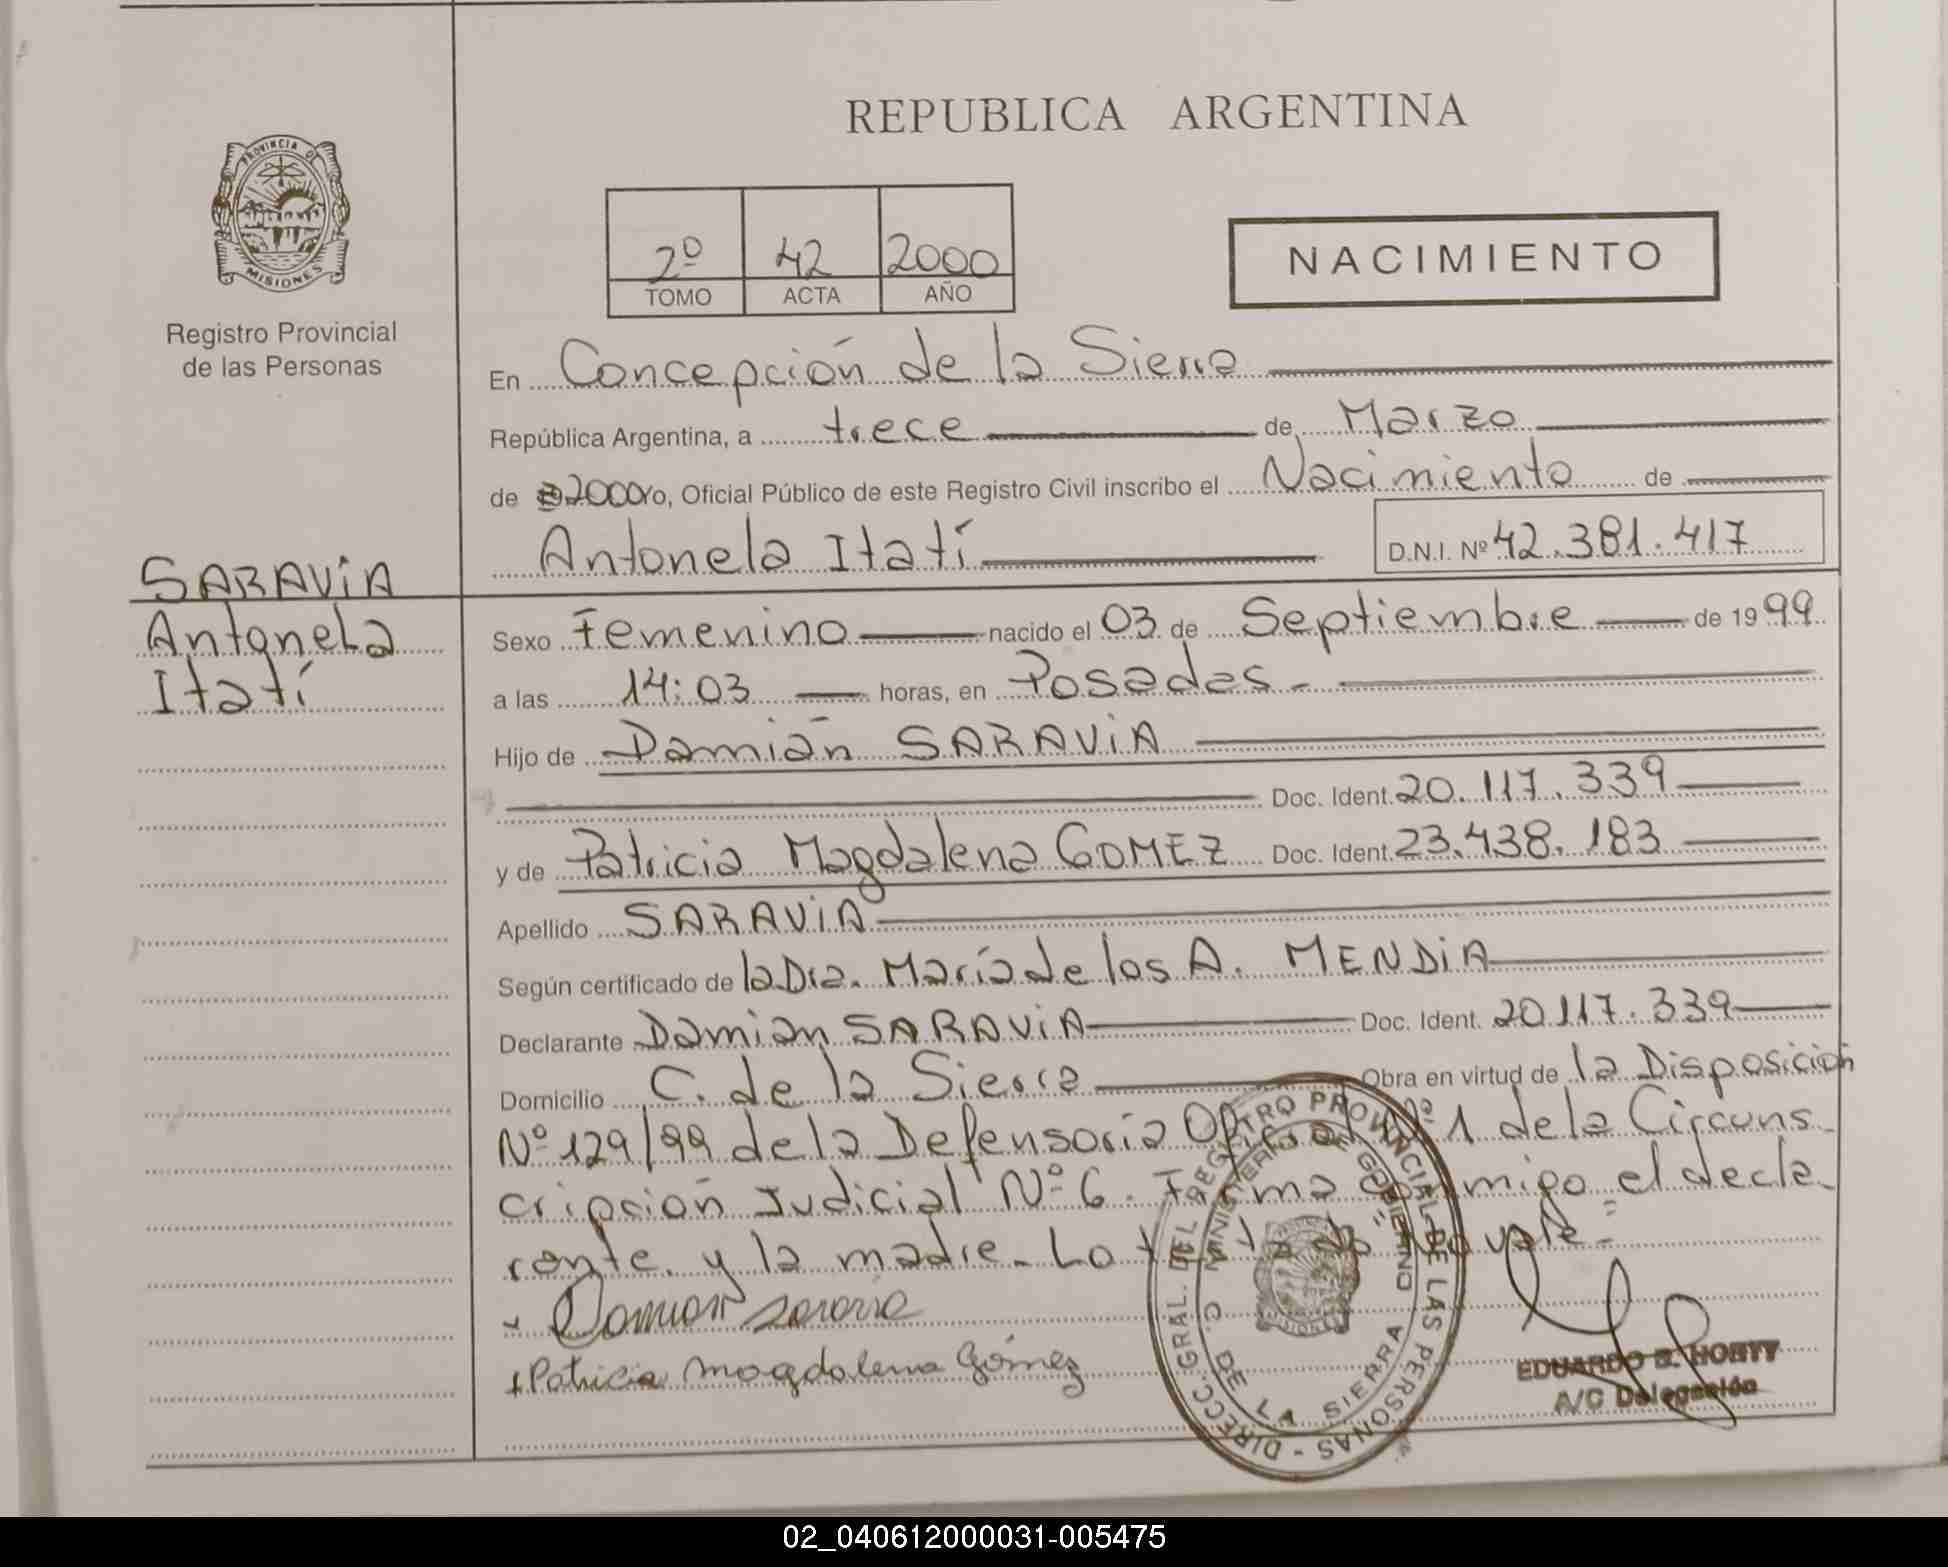 REPUBLICA ARGENTINA
PROVINCIA DE
MISIONES
Registro Provincial
de las Personas
2º 42 2000
TOMO ACTA AÑO
NACIMIENTO
En Concepción de la Sierra
República Argentina, a trece de Marzo
de 2000 yo, Oficial Público de este Registro Civil inscribo el Nacimiento de
Antonela Itatí D.N.I. Nº 42.381.417
SARAVIA
Antonela
Itatí
Sexo Femenino nacido el 03 de Septiembre de 1999
a las 14:03 horas, en Posadas -
Hijo de Damián SARAVIA
Doc. Ident. 20.117.339
y de Patricia Magdalena GOMEZ Doc. Ident. 23.438.183
Apellido SARAVIA
Según certificado de la Dra. María de los A. MENDIA
Declarante Damian SARAVIA Doc. Ident. 20.117.339
Domicilio C. de la Sierra Obra en virtud de la Disposición
Nº 129/99 de la Defensoría Oficial Nº 1 de la Circuns
cripción Judicial Nº 6. Firma conmigo el decla
rante y la madre. Lo testado "No vale"
Damian Saravia
Patricia Magdalena Gómez
DIRECC. GRAL. DEL REGISTRO PROVINCIAL DE LAS PERSONAS -
MINISTERIO DE GOBIERNO
C. DE LA SIERRA
MISIONES
EDUARDO
A/C Delegación
02_040612000031-005475